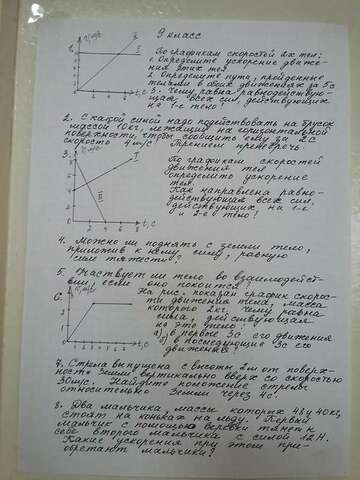 9 класс
V, м/с
По графикам скоростей 2х тел:
1. Определите ускорение движе-
ния этих тел
2. Определите пути, пройденные
телами в обоих движениях за 5с
3. Чему равна равнодействую-
щая всех сил, действующих
на 1-е тело?
t, с
2. С какой силой надо подействовать на брусок
массой 10кг, лежащий на горизонтальной
поверхности, чтобы сообщить ему за 2с
скорость 4м/с? Трением пренебречь
3.
I
По графикам скоростей
движения тел
определить ускорение
тел.
Как направлена равно-
действующая всех сил,
действующих на 1-е
и 2-е тело?
II
t, с
4. Можно ли поднять с земли тело,
приложив к нему силу, равную
силе тяжести?
5. Участвует ли тело во взаимодейст-
вии, если оно покоится?
6.
На рис. показан график скорос-
ти движения тела, масса
которого 2кг. Чему равна
сила, действующая
на это тело:
а) в первые 3с его движения
б) в последующие 3с его
движения?
t, с
7. Стрела выпущена с высоты 2м от поверх-
ности Земли вертикально вверх со скоростью
30м/с. Найдите положение стрелы
относительно Земли через 4с.
8. Два мальчика, массы которых 48 и 40кг,
стоят на коньках на льду. Первый
мальчик с помощью веревки тянет к
себе второго мальчика с силой 12Н.
Какие ускорения при этом при-
обретают мальчики?